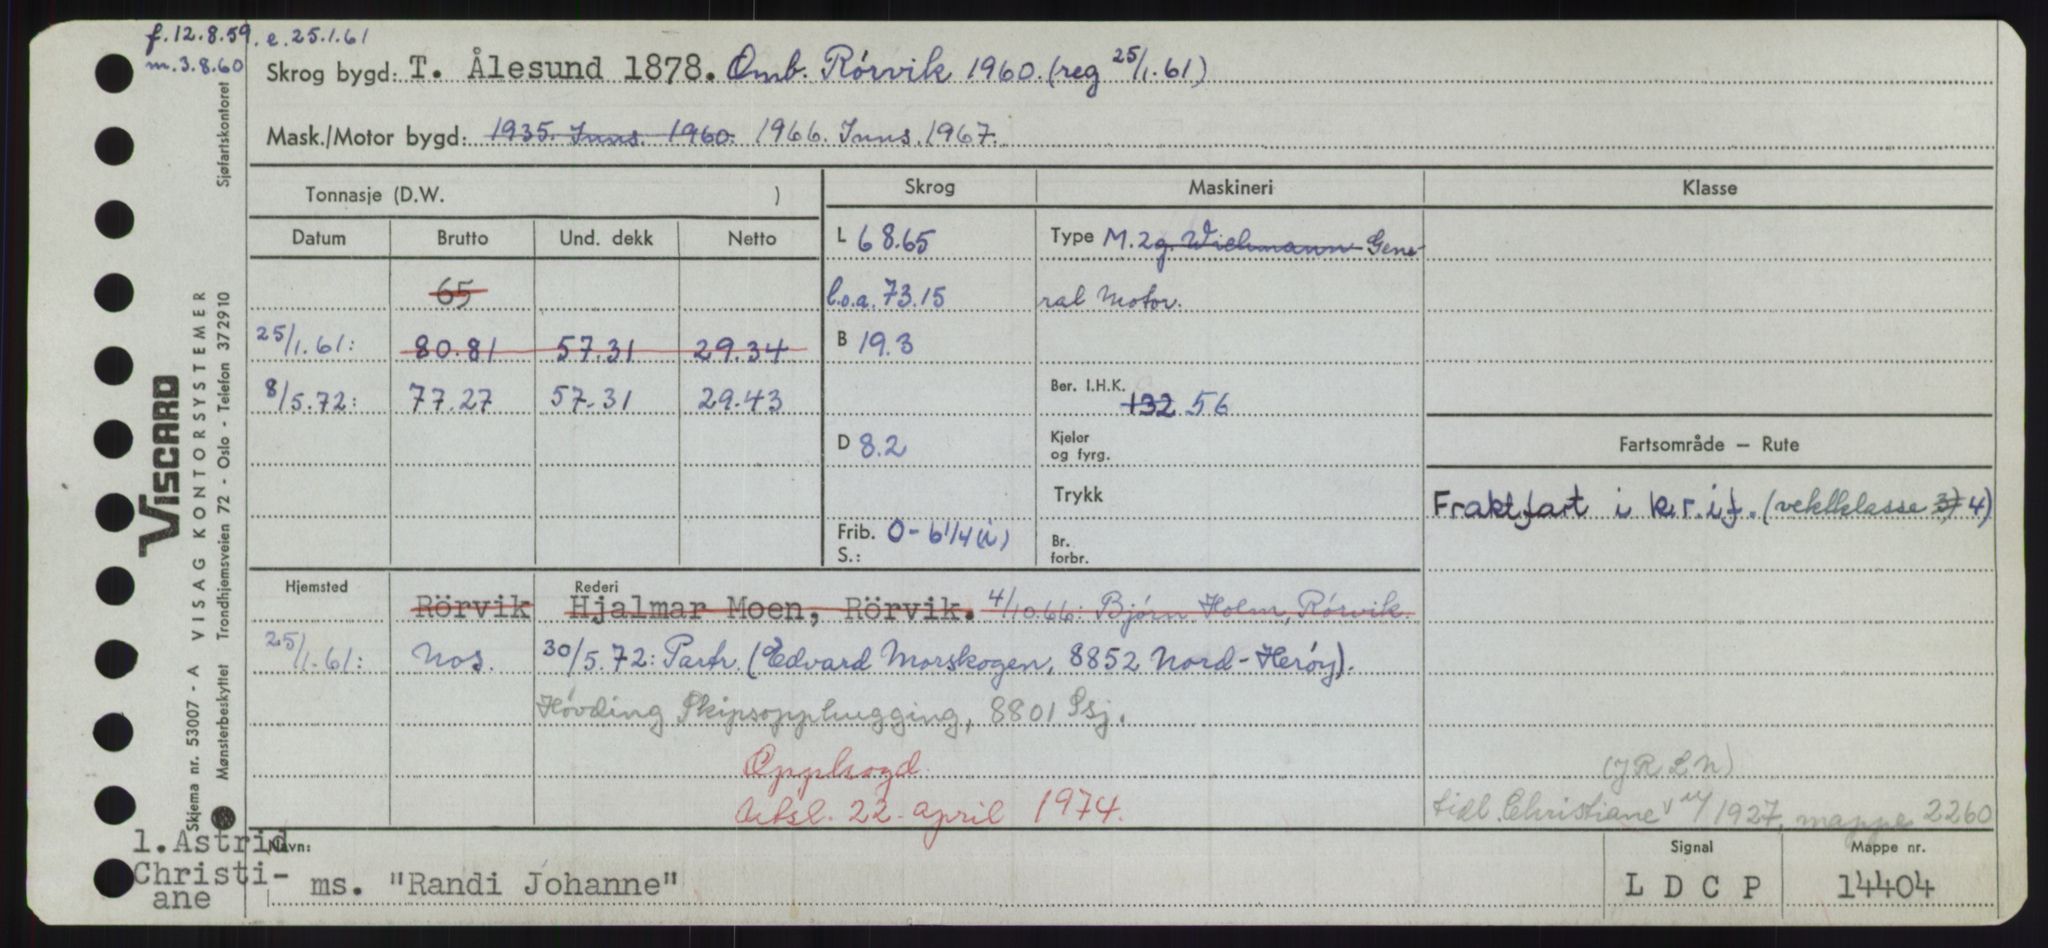 f.12.8.59. e.25.1.61
m.3.8.60
Skrog bygd: T. Ålesund 1878. Omb. Rórvik 1960. (reg 25/1.61)
Mask./Motor bygd: 1935. Inns. 1960. 1966. Inns. 1967.
Tonnasje (D.W. )
Skrog Maskineri Klasse
Datum Brutto Und. dekk Netto
L 68.65 Type M.2g. Wichmann Gene-
65 l.o.a. 73.15 ral Motor.
25/1.61: 80.81 57.31 29.34 B 19.3
8/5.72: 77.27 57.31 29.43 Ber. I.H.K. 132 56
D 8.2 Kjeler og fyrg.
Fartsområde — Rute
Trykk
Fraktfart i k.r.i.f. (vektklasse 3) 4)
Frib. 0-6 1/4 (i) Br. forbr.
S.:
Hjemsted Rederi
Rörvik Hjalmar Moen, Rörvik. 4/10.66: Bjórn Holm, Rórvik.
25/1.61: Nos. 30/5.72: Partr. (Edvard Morskogen, 8852 Nord-Heróy).
Hóvding Skipsopphugging, 8801 Ssj.
Opphogd
Utsl. 22. april 1974.
(JRLN)
tidl. Christiane 1927, mappe 2260
1. Astrid
Christi-
ane
Navn:
ms. "Randi Johanne"
Signal
L D C P
Mappe nr.
14404
VISCARD
VISAG KONTORSYSTEMER
Skjema nr. 53007 - A
Mønsterbeskyttet Trondhjemsveien 72 - Oslo - Telefon 372910
Sjøfartskontoret